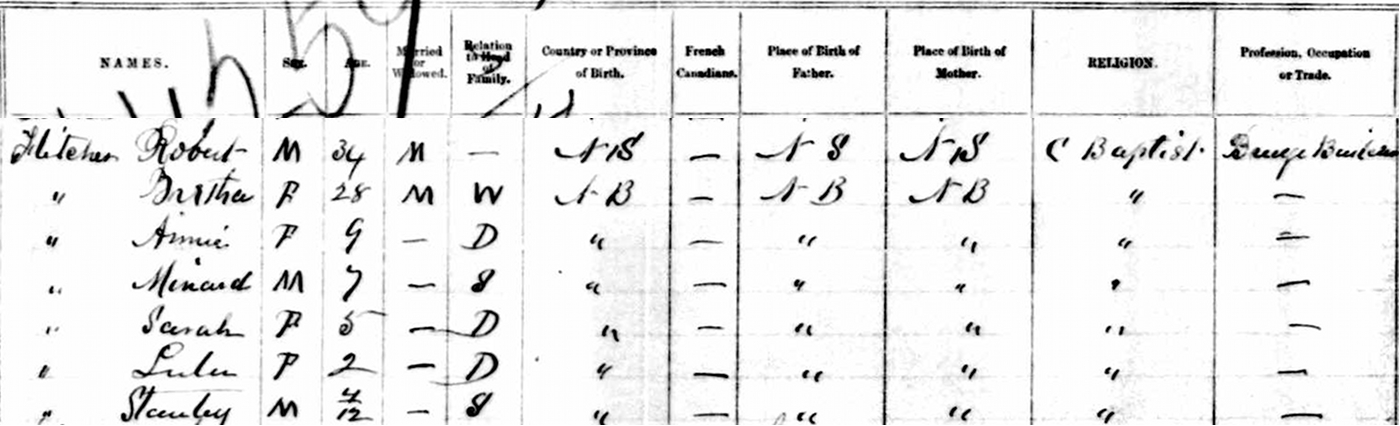 NAMES. Sex. Age. Married or Widowed. Relation to Head of Family. Country or Province of Birth. French Canadians. Place of Birth of Father. Place of Birth of Mother. RELIGION. Profession, Occupation or Trade.
Robert M 34 M — N S — N S N S C Baptist
" Bertha F 28 M W N B — N B N B " —
" Annie F 9 — D " — " " " —
" Minard M 7 — S " — " " " —
" Sarah F 5 — D " — " " " —
" Lulu F 2 — D " — " " " —
" Stanley M 4/12 — S " — " " " —